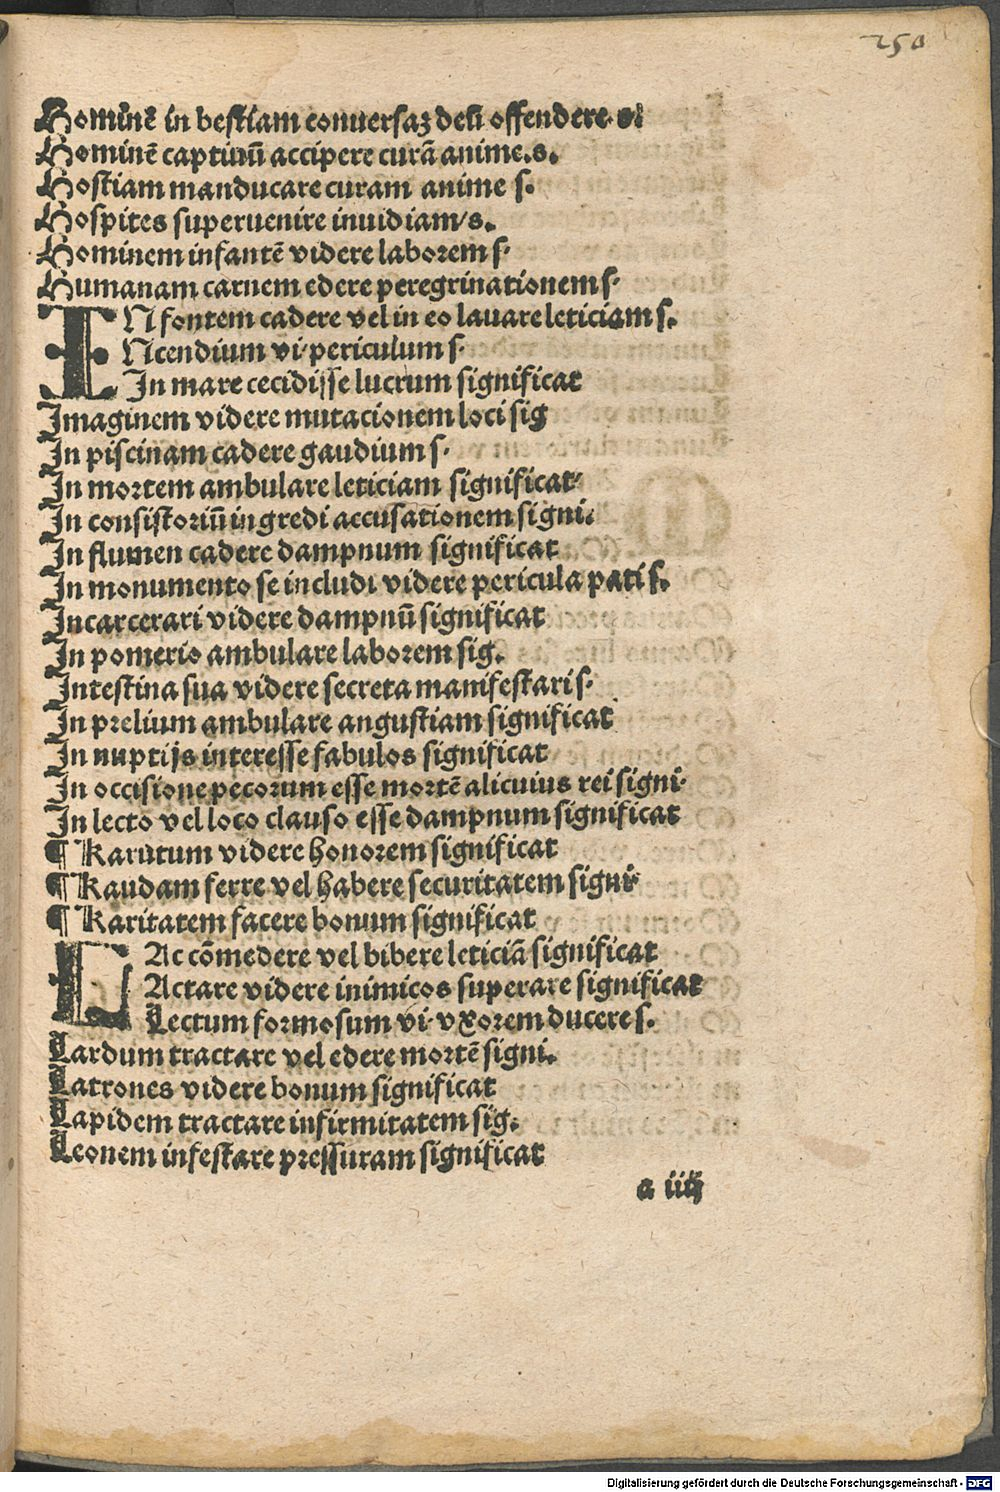 250
Hominē in bestiam conuersaꝫ deū offendere
Hominē captiuū accipere curā anime.s.
Hostiam manducare curam anime s.
Hospites superuenire inuidiam/s.
Hominem infantē videre laborem s.
Humanam carnem edere peregrinationem s.
IN fontem cadere vel in eo lauare leticiam s.
Ncendium vi. periculum s.
In mare cecidisse lucrum significat
Imaginem videre mutacionem loci sig
In piscinam cadere gaudium s.
In mortem ambulare leticiam significat.
In consistoriū ingredi accusationem signi.
In flumen cadere dampnum significat
In monumento se includi videre pericula pati s.
Incarcerari videre dampnū significat
In pomerio ambulare laborem sig.
Intestina sua videre secreta manifestari s.
In prelium ambulare angustiam significat
In nuptijs interesse fabulos significat
In occisione pecorum esse mortē alicuius rei signi.
In lecto vel loco clauso esse dampnum significat
¶ Karutum videre honorem significat
¶ Kaudam ferre vel habere securitatem signi.
¶ Karitatem facere bonum significat
LAc cōmedere vel bibere leticiā significat
Actare videre inimicos superare significat
Lectum formosum vi. vxorem ducere s.
Lardum tractare vel edere mortē signi.
Latrones videre bonum significat
Lapidem tractare infirmitatem sig.
Leonem infestare pressuram significat
a iiij
Digitalisierung gefördert durch die Deutsche Forschungsgemeinschaft - DFG